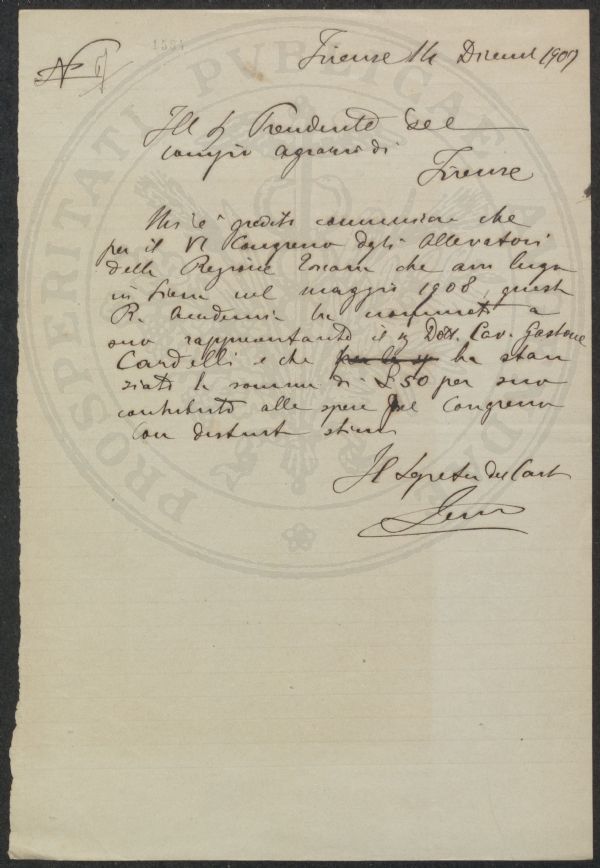 N 6
1554
Firenze 14 Dicemb 1907
Ill Sig Presidente del
Comizio agrario di
Firenze
Mi è gradito comunicare che
per il VI Congresso degli Allevatori
della Regione Toscana che avrà luogo
in Siena nel maggio 1908, questa
R. Accademia ha nominato a
suo rappresentante il Sig Dott. Cav. Gastone
Cardelli e che ha stan
ziato la somma di £ 50 per suo
contributo alle spese del Congresso
Con distinta stima
Il Segretario
PROSPERITATI PUBLICAE